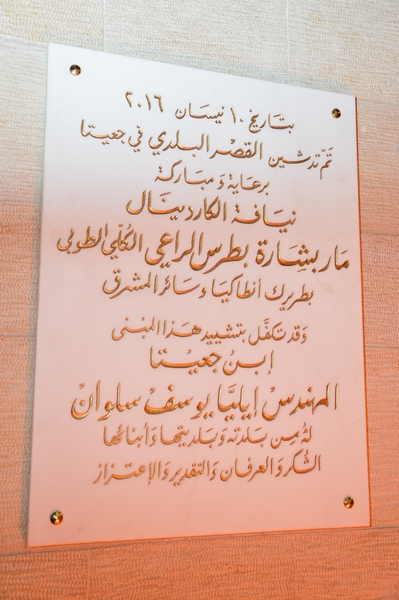 بتاريخ ١٠ نيسان ٢٠١٦
تمّ تدشين القصر البلدي في جعيتا
برعاية ومباركة
نيافة الكاردينال
مار بشارة بطرس الراعي الكلّي الطوبى
بطريرك أنطاكيا وسائر المشرق
وقد تكفّل بتشييد هذا المبنى
إبن جعيتا
المهندس إيليّا يوسف سلوان
له من بلدته وبلديتها وأبنائها
الشكر والعرفان والتقدير والإعتزاز